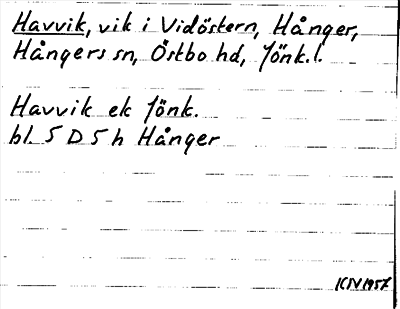 Havvik, vik i Vidöstern, Hånger,
Hångers sn, Östbo hd, Jönk. l.
Havvik ek Jönk.
bl. 5 D 5 h Hånger
KIV 1957